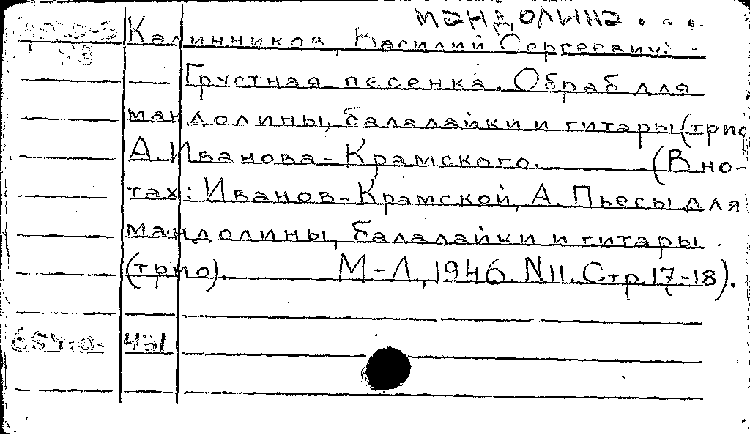 мандолина...
Калинников, Василий Сергеевич.
Грустная песенка. Обраб для
мандолины, балалайки и гитары (трио
А. Иванова-Крамского. (В но-
тах: Иванов-Крамской, А. Пьесы для
мандолины, балалайки и гитары
(трио). М-Л, 1946. N11. Стр. 17-18).